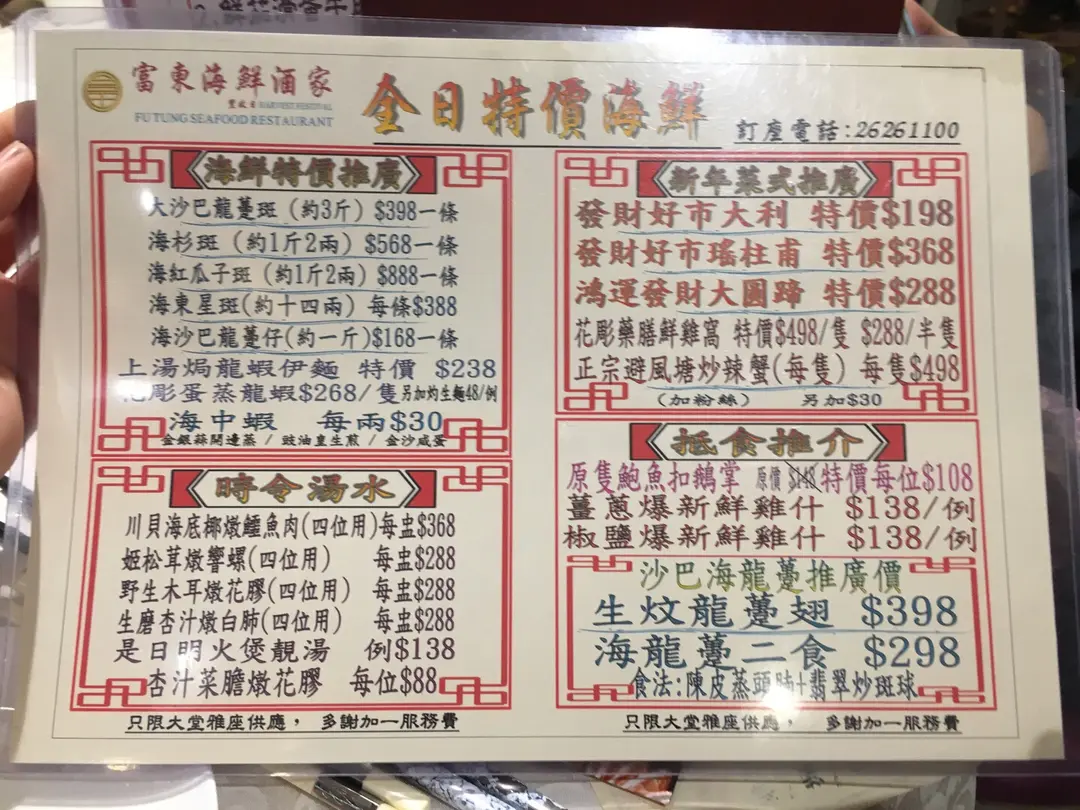 富東海鮮酒家
豐收日 HARVEST FESTIVAL
FU TUNG SEAFOOD RESTAURANT
全日特價海鮮
訂座電話:26261100
海鮮特價推廣
大沙巴龍躉斑（約3斤）$398一條
海杉斑（約1斤2兩）$568一條
海紅瓜子斑（約1斤2兩）$888一條
海東星斑(約十四兩) 每條$388
海沙巴龍躉仔(約一斤)$168一條
上湯焗龍蝦伊麵 特價 $238
花彫蛋蒸龍蝦$268/隻另加灼生麵48/例
海中蝦 每兩$30
金銀蒜開邊蒸 / 豉油皇生煎 / 金沙咸蛋
時令湯水
川貝海底椰燉鱷魚肉(四位用)每盅$368
姬松茸燉響螺(四位用) 每盅$288
野生木耳燉花膠(四位用) 每盅$288
生磨杏汁燉白肺(四位用) 每盅$288
是日明火煲靚湯 例$138
杏汁菜膽燉花膠 每位$88
只限大堂雅座供應， 多謝加一服務費
新年菜式推廣
發財好市大利 特價$198
發財好市瑤柱甫 特價$368
鴻運發財大圓蹄 特價$288
花彫藥膳鮮雞窩 特價$498/隻 $288/半隻
正宗避風塘炒辣蟹(每隻) 每隻$498
(加粉絲) 另加$30
抵食推介
原隻鮑魚扣鵝掌 原價$148特價每位$108
薑蔥爆新鮮雞什 $138/例
椒鹽爆新鮮雞什 $138/例
沙巴海龍躉推廣價
生炆龍躉翅 $398
海龍躉二食 $298
食法:陳皮蒸頭腩+翡翠炒斑球
只限大堂雅座供應， 多謝加一服務費